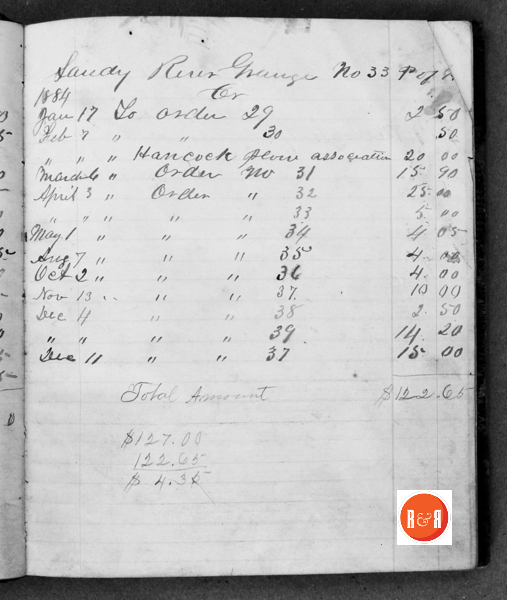 Sandy River Grange No 33 P of H
Cr
1884
Jan 17 To order 29 2 50
Feb 7 " " 30 50
" " " Hancock Store association 20 00
March 6 " Order No 31 15 90
April 3 " Order " 32 25 00
" " " " " 33 5 00
May 1 " " " 34 4 05
Aug 7 " " " 35 4 00
Oct 2 " " " 36 4 00
Nov 13 " " " 37 10 00
Dec 4 " " 38 2 50
" " " " " 39 14 20
Dec 11 " " 37 15 00
Total Amount $122.65
$127.00
122.65
$ 4.35
R&R